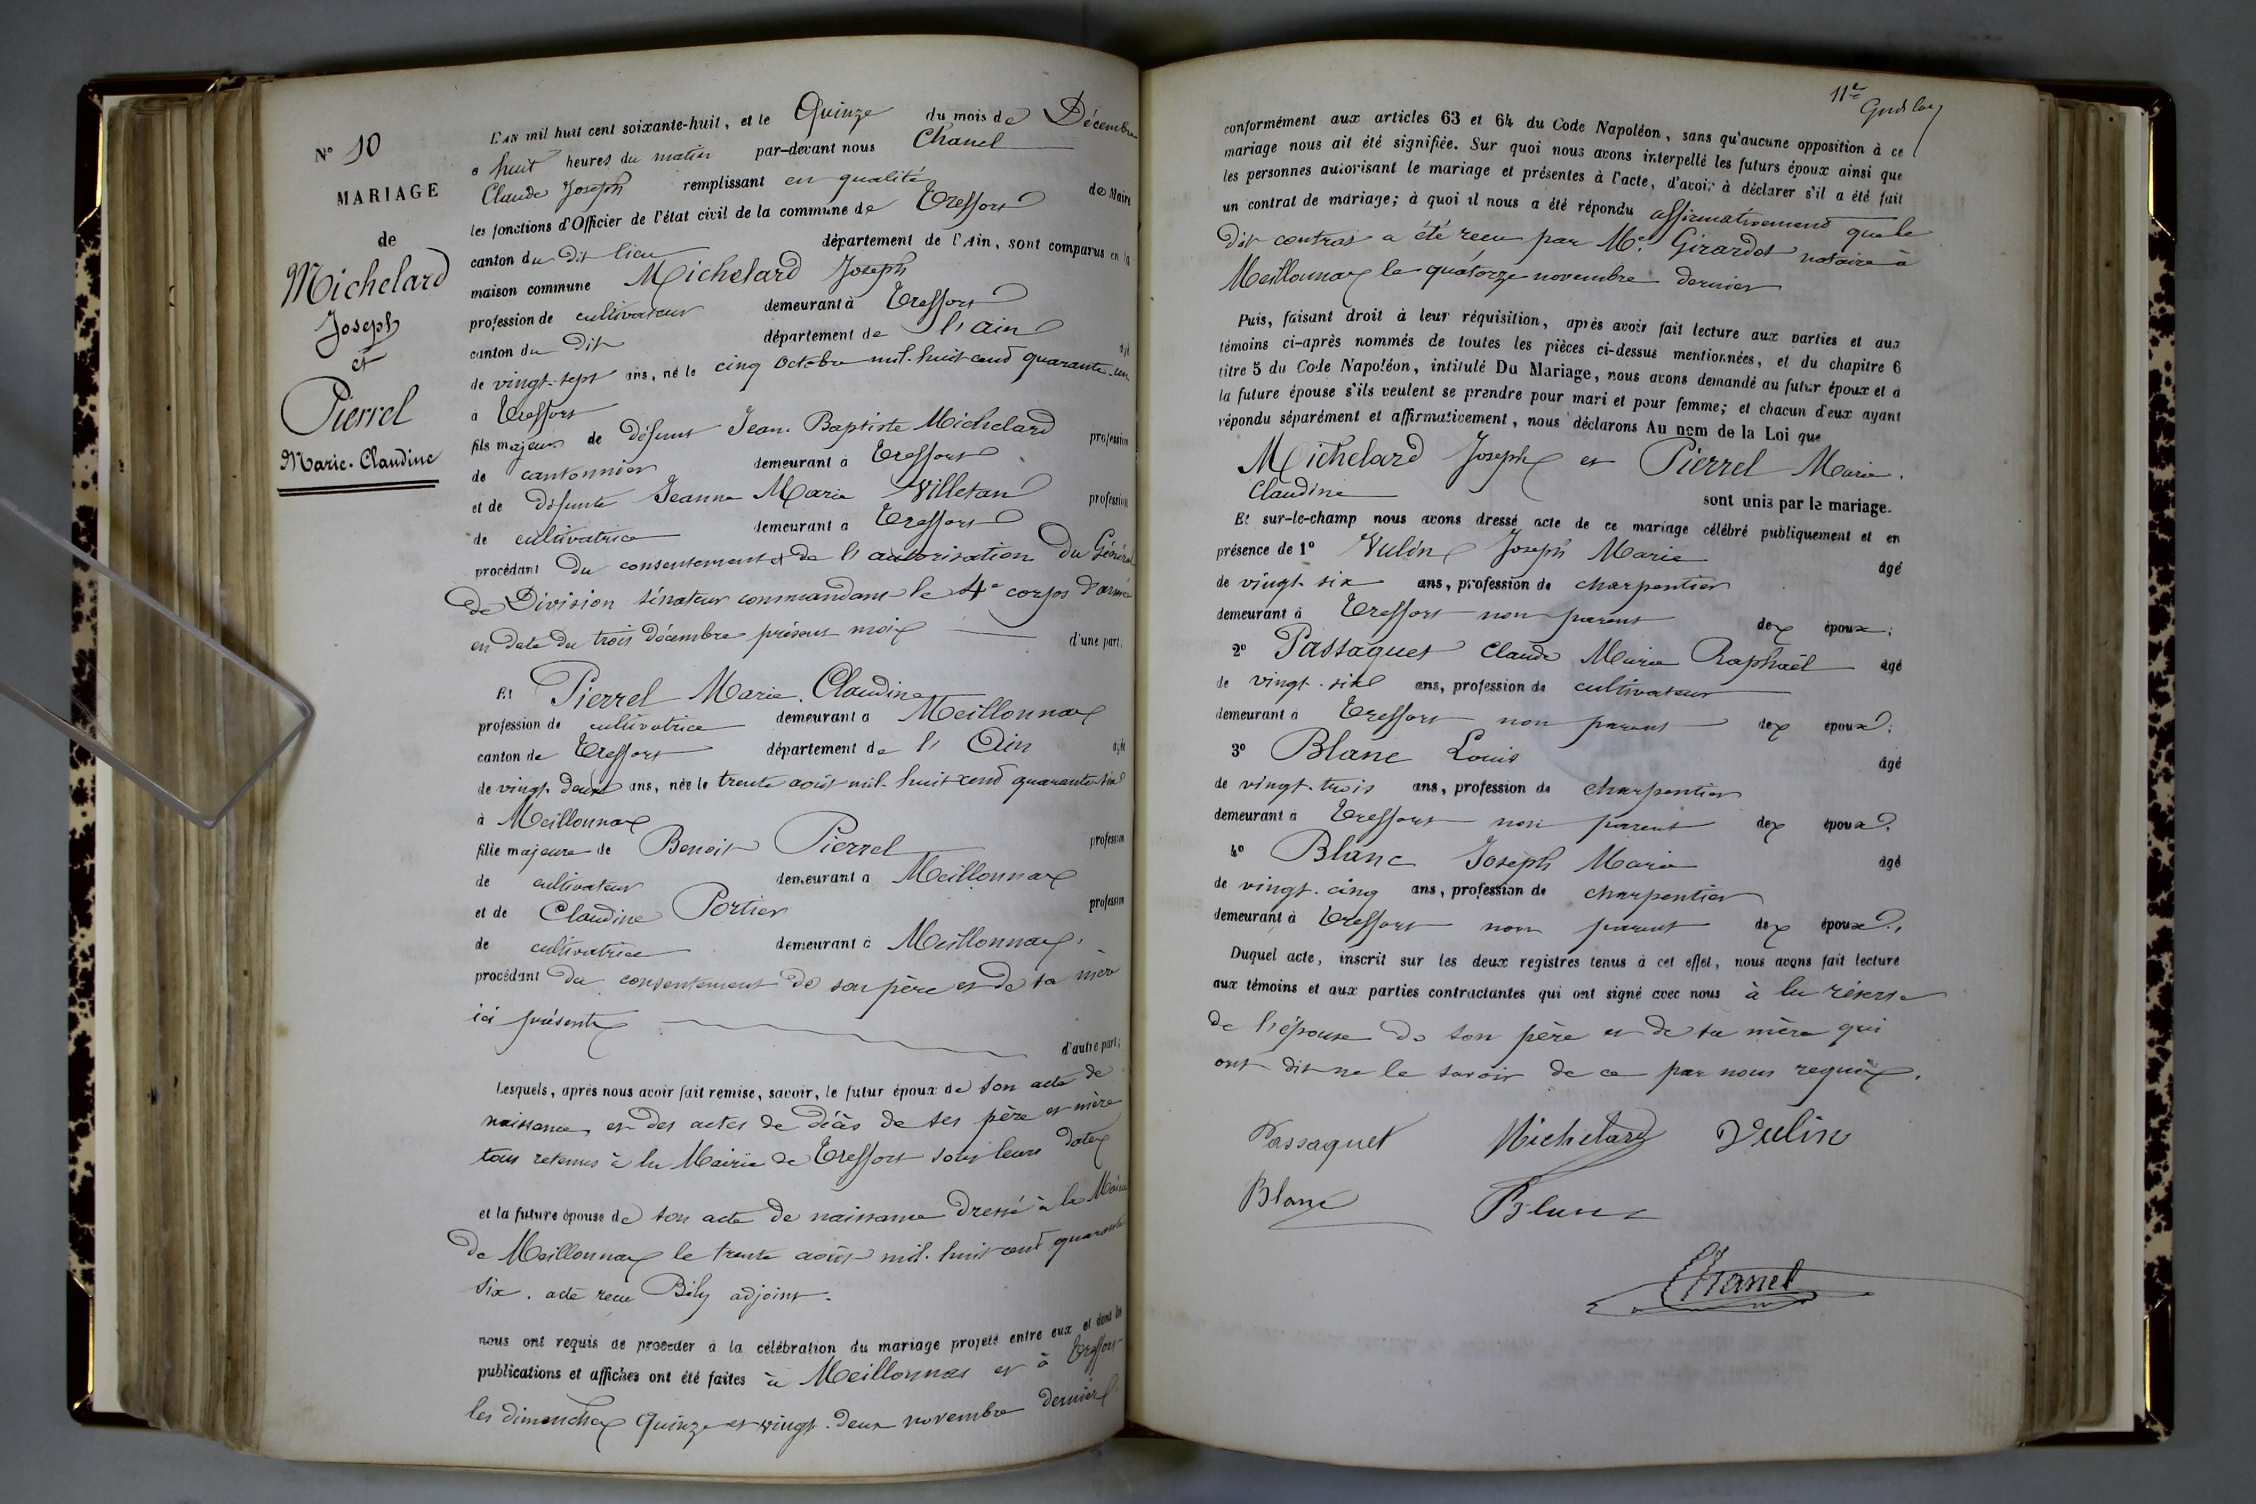 N° 10
MARIAGE
de
Michelard
Joseph
et
Pierrel
Marie-Claudine
L'AN mil huit cent soixante-huit, et le Quinze du mois de Décembre
a huit heures du matin par-devant nous Chanel
Claude Joseph remplissant en qualité de Maire
les fonctions d'Officier de l'état civil de la commune de Treffort
canton du dit lieu département de l'Ain, sont comparus en la
maison commune Michelard Joseph
profession de cultivateur demeurant à Treffort
canton du dit département de l'Ain âgé
de vingt-sept ans, né le cinq octobre mil-huit cent quarante-un
a Treffort
fils majeur de défunt Jean-Baptiste Michelard profession
de cantonnier demeurant à Treffort
et de défunte Jeanne Marie Villetan profession
de cultivatrice demeurant a Treffort
procédant du consentement & de l'autorisation du Général
de Division sénateur commandant le 4e corps d'armée
en date du trois décembre présent mois d'une part;
Et Pierrel Marie-Claudine
profession de cultivatrice demeurant a Meillonnas
canton de Treffort département de l'Ain âgée
de vingt-deux ans, née le trente août mil-huit cent quarante-six
à Meillonnas
fille majeure de Benoit Pierrel profession
de cultivateur demeurant a Meillonnas
et de Claudine Portier profession
de cultivatrice demeurant à Meillonnas,
procédant du consentement de son père et de sa mère
ici présents
d'autre part;
Lesquels, après nous avoir fait remise, savoir, le futur époux de son acte de
naissance, et des actes de décès de ses père et mère
tous retenus à la Mairie de Treffort sous leurs dates
et la future épouse de son acte de naissance dressé à la Mairie
de Meillonnas le trente août mil-huit cent quarante
six. acte reçu Bély adjoint.
nous ont requis de procéder à la célébration du mariage projeté entre eux et dont les
publications et affiches ont été faites à Meillonnas et à Treffort
les dimanches quinze et vingt-deux novembre dernier
11e
conformément aux articles 63 et 64 du Code Napoléon, sans qu'aucune opposition à ce
mariage nous ait été signifiée. Sur quoi nous avons interpellé les futurs époux ainsi que
les personnes autorisant le mariage et présentes à l'acte, d'avoir à déclarer s'il a été fait
un contrat de mariage; à quoi il nous a été répondu affirmativement que le
dit contrat a été reçu par Me Girardot notaire à
Meillonnas le quatorze novembre dernier
Puis, faisant droit à leur réquisition, après avoir fait lecture aux parties et aux
témoins ci-après nommés de toutes les pièces ci-dessus mentionnées, et du chapitre 6
titre 5 du Code Napoléon, intitulé Du Mariage, nous avons demandé au futur époux et à
la future épouse s'ils veulent se prendre pour mari et pour femme; et chacun d'eux ayant
répondu séparément et affirmativement, nous déclarons Au nom de la Loi que
Michelard Joseph et Pierrel Marie-
Claudine sont unis par le mariage.
Et sur-le-champ nous avons dressé acte de ce mariage célébré publiquement et en
présence de 1° Vulin Joseph Marie âgé
de vingt-six ans, profession de charpentier
demeurant à Treffort non parent des époux;
2° Passaquet Claude Marie Raphaël âgé
de vingt-six ans, profession de cultivateur
demeurant à Treffort non parent des époux;
3° Blanc Louis âgé
de vingt-trois ans, profession de charpentier
demeurant a Treffort non parent des époux.
4° Blanc Joseph Marie âgé
de vingt-cinq ans, profession de charpentier
demeurant à Treffort non parent des époux.,
Duquel acte, inscrit sur les deux registres tenus à cet effet, nous avons fait lecture
aux témoins et aux parties contractantes qui ont signé avec nous à la réserve
de l'épouse de son père et de sa mère qui
ont dit ne le savoir de ce par nous requis.
Passaquet Michelard Vulin
Blanc Blanc
Chanel